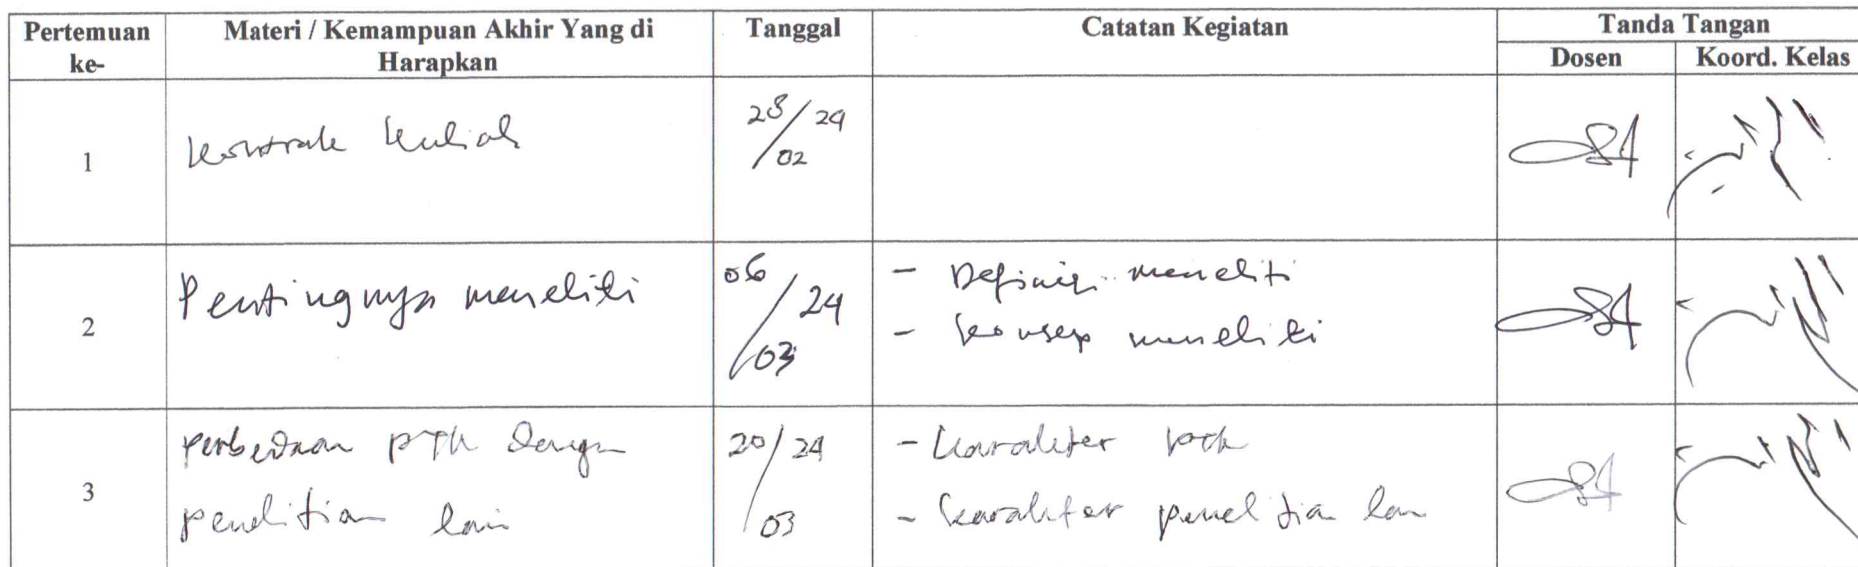 Pertemuan ke-
Materi / Kemampuan Akhir Yang di Harapkan
Tanggal
Catatan Kegiatan
Tanda Tangan
Dosen
Koord. Kelas
1
kontrak kuliah
28/02 24
2
Pentingnya meneliti
06/03 24
- Definisi meneliti
- konsep meneliti
3
perbedaan PTK dengan
penelitian lain
20/03 24
- karakter PTK
- karakter penelitian lain